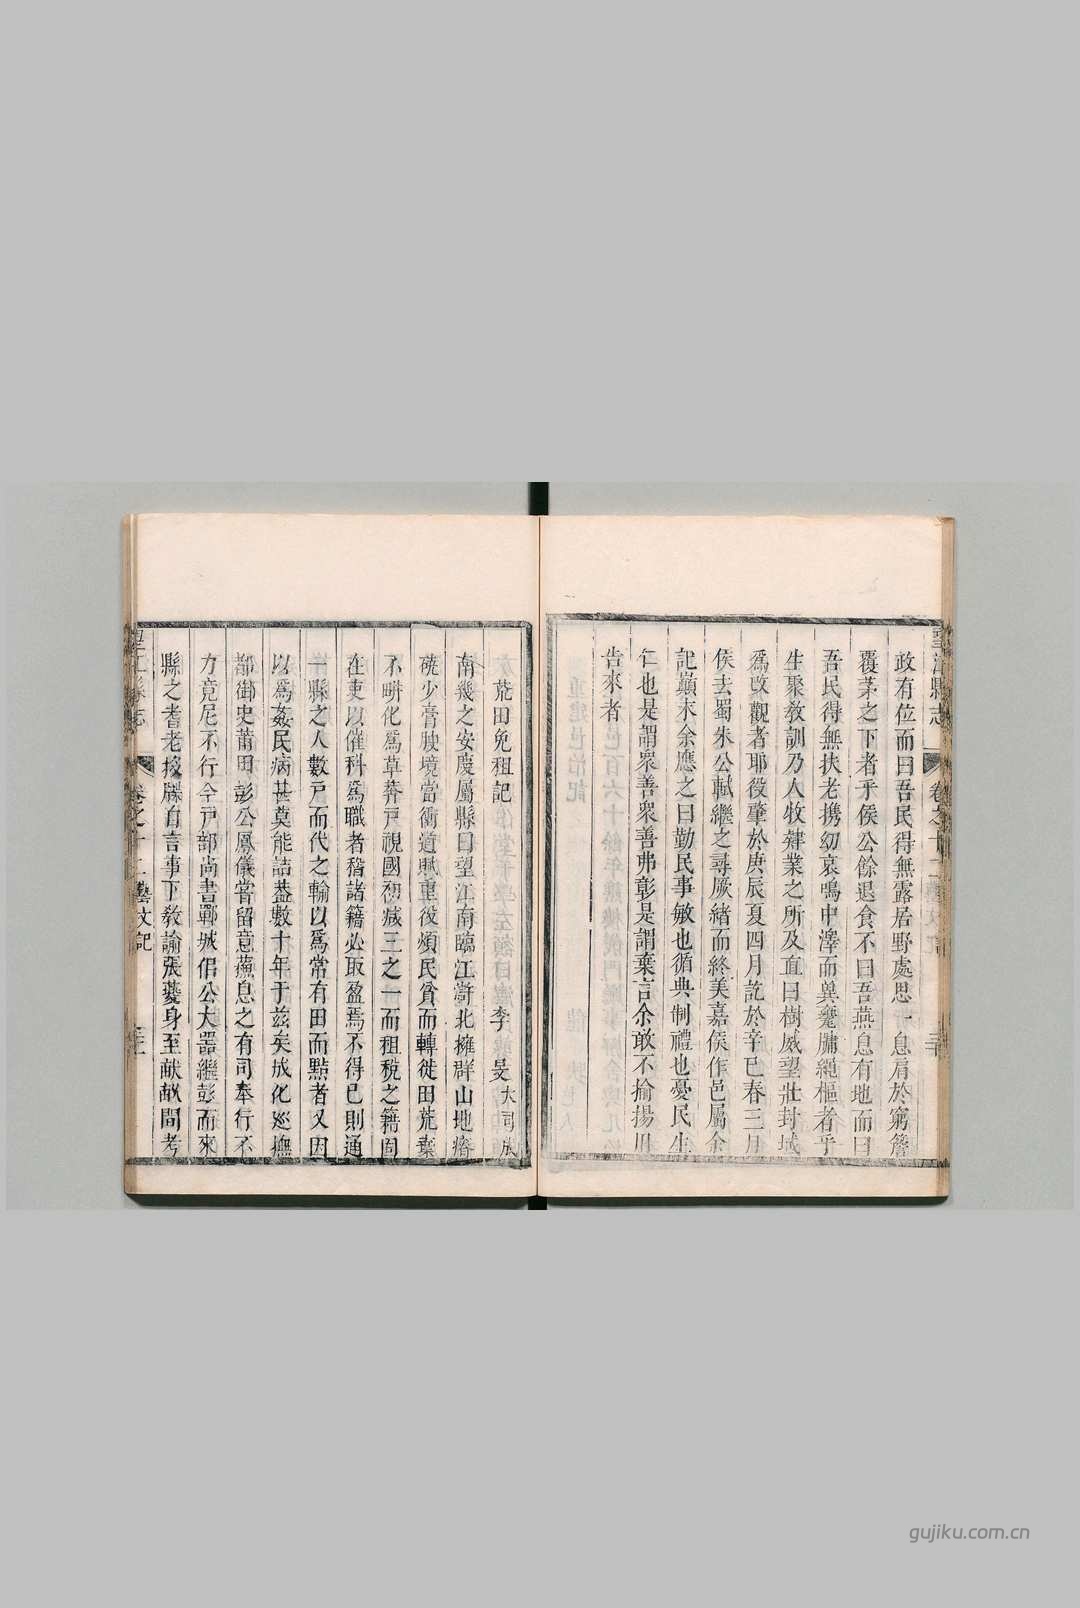 望江縣志 卷之十二 藝文記 三十
政有位而曰吾民得無露居野處思一息肩於窮簷
覆茅之下者乎侯公餘退食不曰吾燕息有地而曰
吾民得無扶老携幼哀鳴中澤而異甕牖繩樞者乎
生聚教訓乃人牧肄業之所及直曰樹威望壯封域
爲改觀者耶役肇於庚辰夏四月訖於辛巳春三月
侯去蜀朱公軾繼之尋厥緒而終美嘉侯作邑屬余
記巔末余應之曰勤民事敏也循典制禮也憂民生
仁也是謂衆善衆善弗彰是謂棄言余敢不揄揚以
告來者
荒田免租記 李旻大同成
南幾之安慶屬縣曰望江南臨江滸北擁群山地瘠
磽少膏腴境當衝道賦重役煩民貧而轉徙田荒棄
不畊化爲草莽戸視國初減三之一而租稅之籍固
在吏以催科爲職者稽諸籍必取盈焉不得已則通
一縣之人數戸而代之輸以爲常有田而點者又因
以爲姦民病甚莫能詰葢數十年于兹矣成化巡撫
都御史莆田彭公鳳儀嘗留意蘓息之有司奉行不
力竟尼不行今戸部尚書鄆城侣公大器繼彭而來
縣之耆老援牒自言事下教諭張夔身至畎畝間考
望江縣志 卷之十二 藝文記